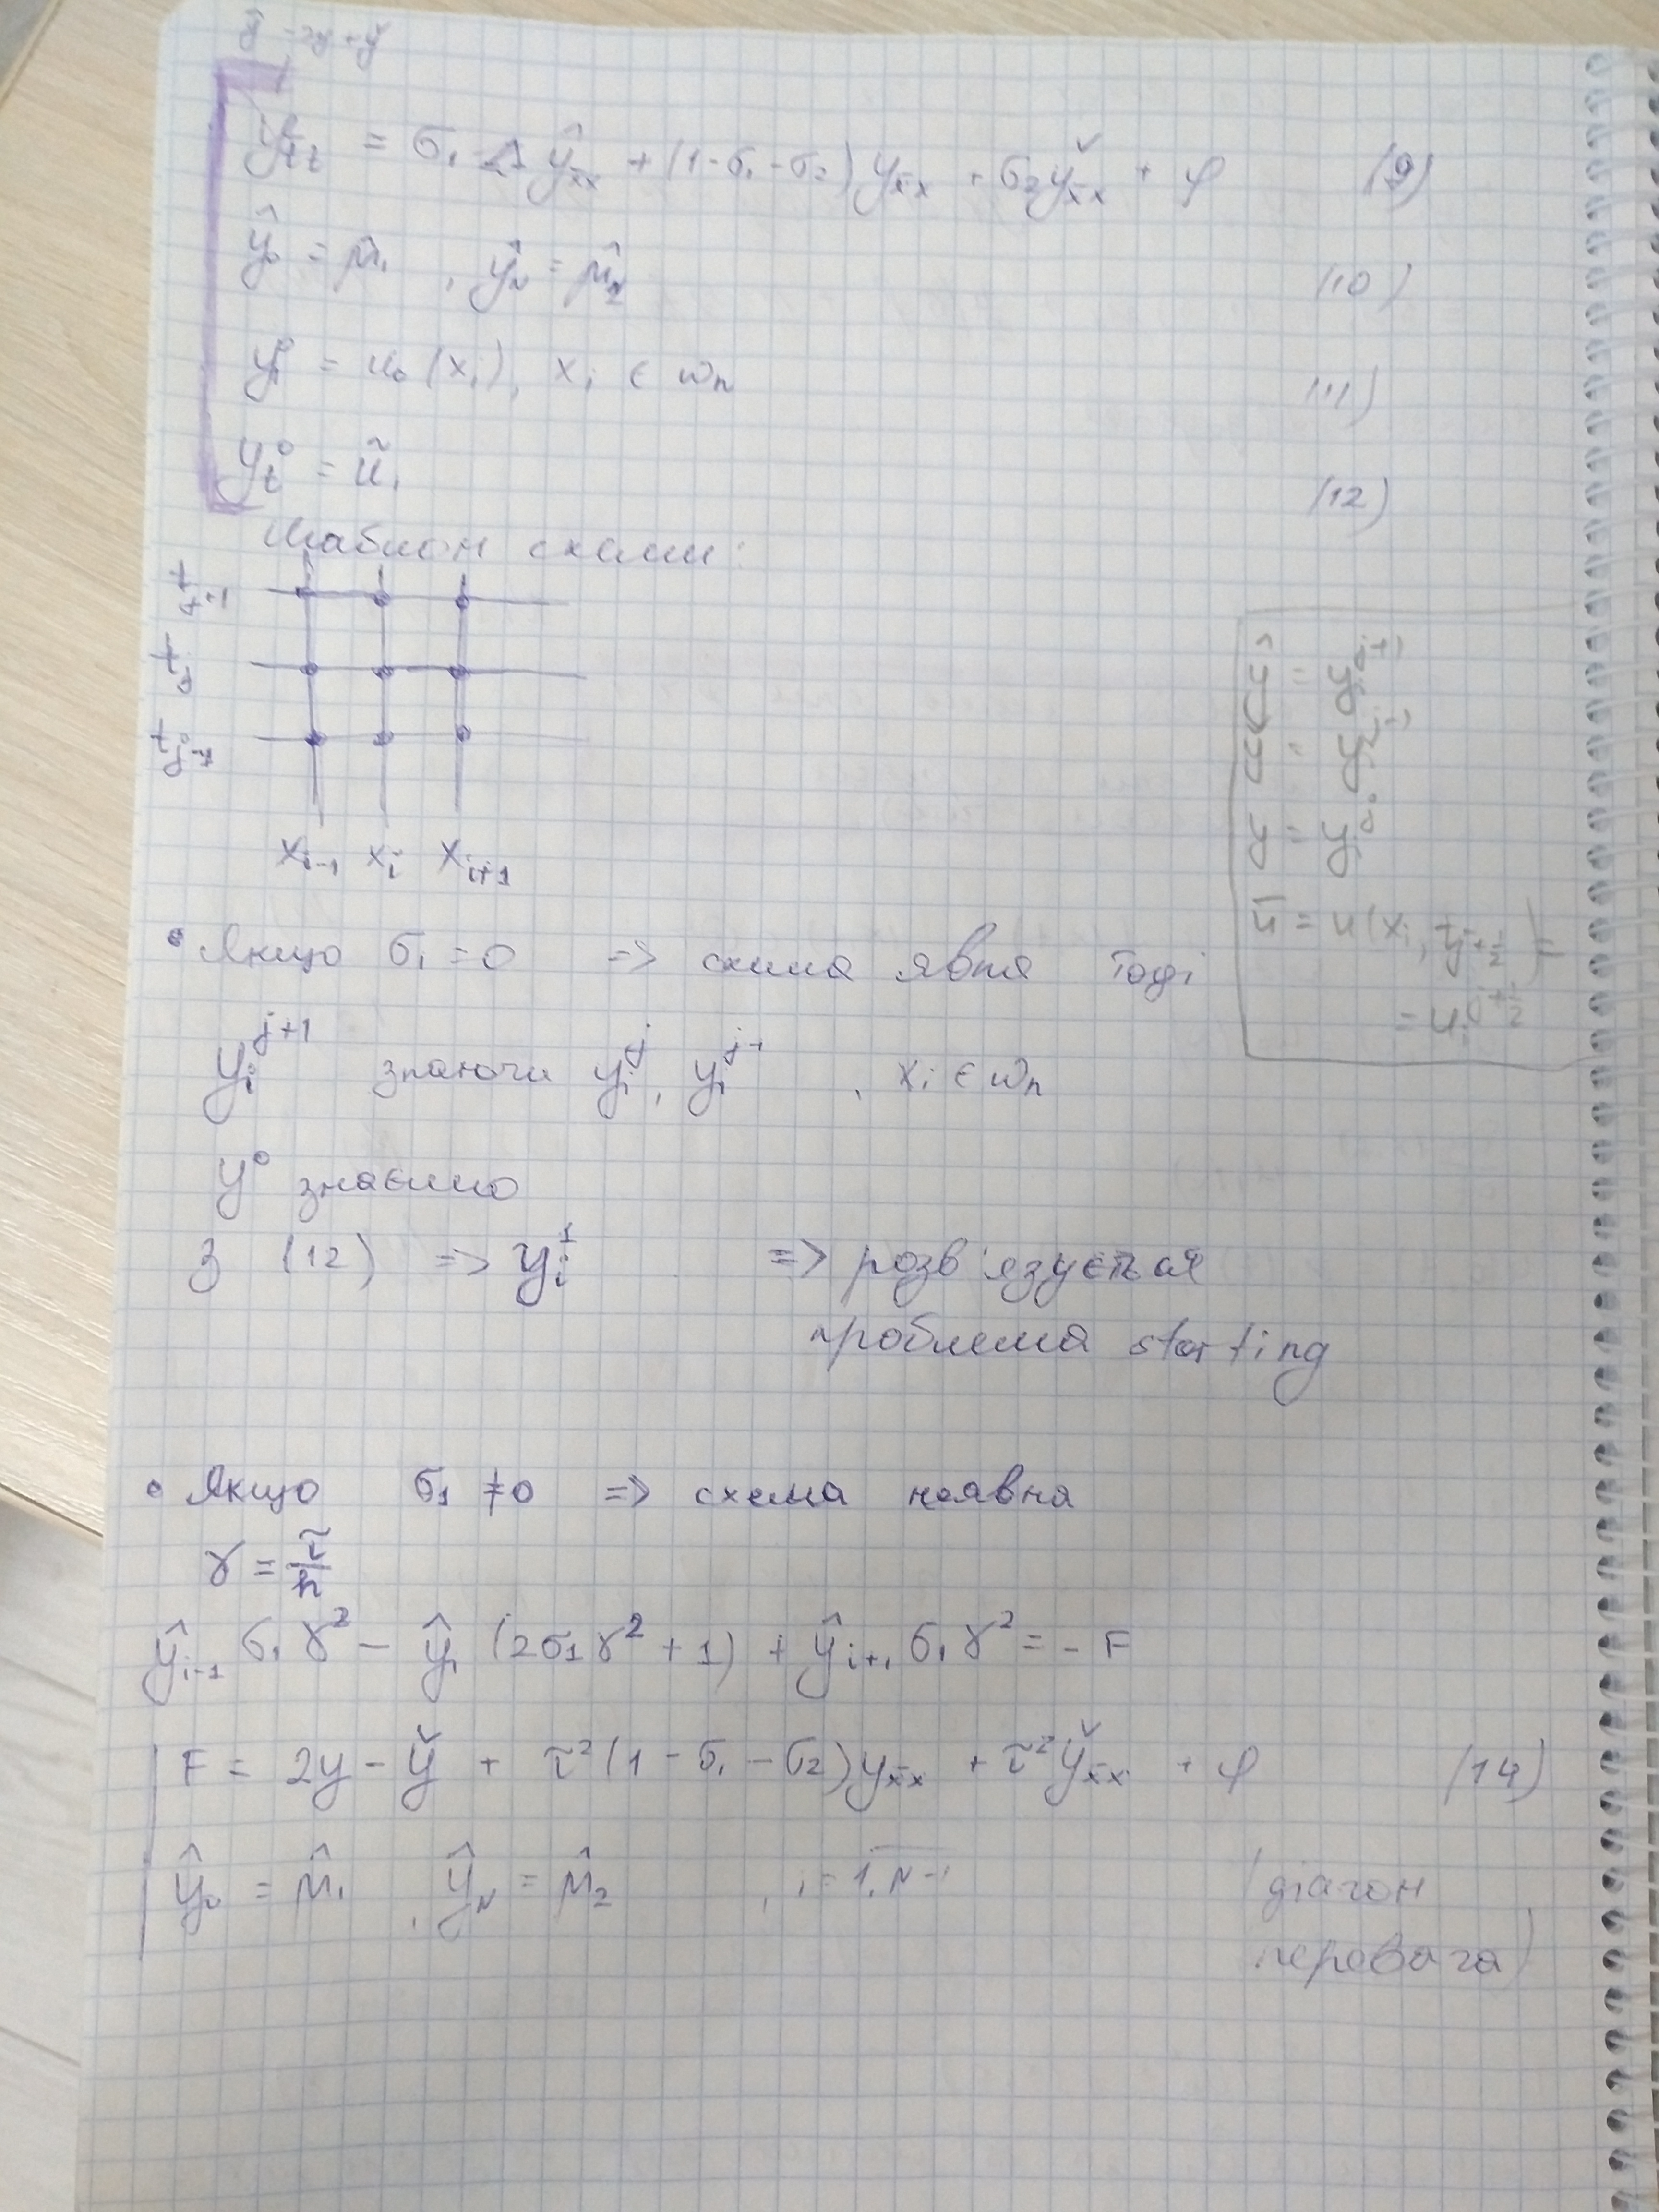 ŷ - 2y + y̌
y_{t̄t} = σ₁ Δ ŷ_{x̄x} + (1 - σ₁ - σ₂) y_{x̄x} + σ₂ y̌_{x̄x} + φ (9)
ŷ₀ = μ̂₁, ŷ_N = μ̂₂ (10)
y_i⁰ = u₀(x_i), x_i ∈ ω_h (11)
y_t⁰ = ũ₁ (12)
Шаблон схеми:
t_{j+1}
t_j
t_{j-1}
x_{i-1} x_i x_{i+1}
ū = u(x_i, t_{j+½}) =
= u_i^{j+½}
• Якщо σ₁ = 0 => схема явна тоді
y_i^{j+1} знаючи y_i^j, y_i^{j-1}, x_i ∈ ω_h
y⁰ знаємо
З (12) => y_i¹ => розв'язується
проблема starting
• Якщо σ₁ ≠ 0 => схема неявна
γ = τ/h
ŷ_{i-1} σ₁ γ² - ŷ_i (2σ₁γ² + 1) + ŷ_{i+1} σ₁ γ² = - F
F = 2y - y̌ + τ²(1 - σ₁ - σ₂) y_{x̄x} + τ² y̌_{x̄x} + φ (14)
ŷ₀ = μ̂₁, ŷ_N = μ̂₂, i = 1, N-1 (діагон
перевага)